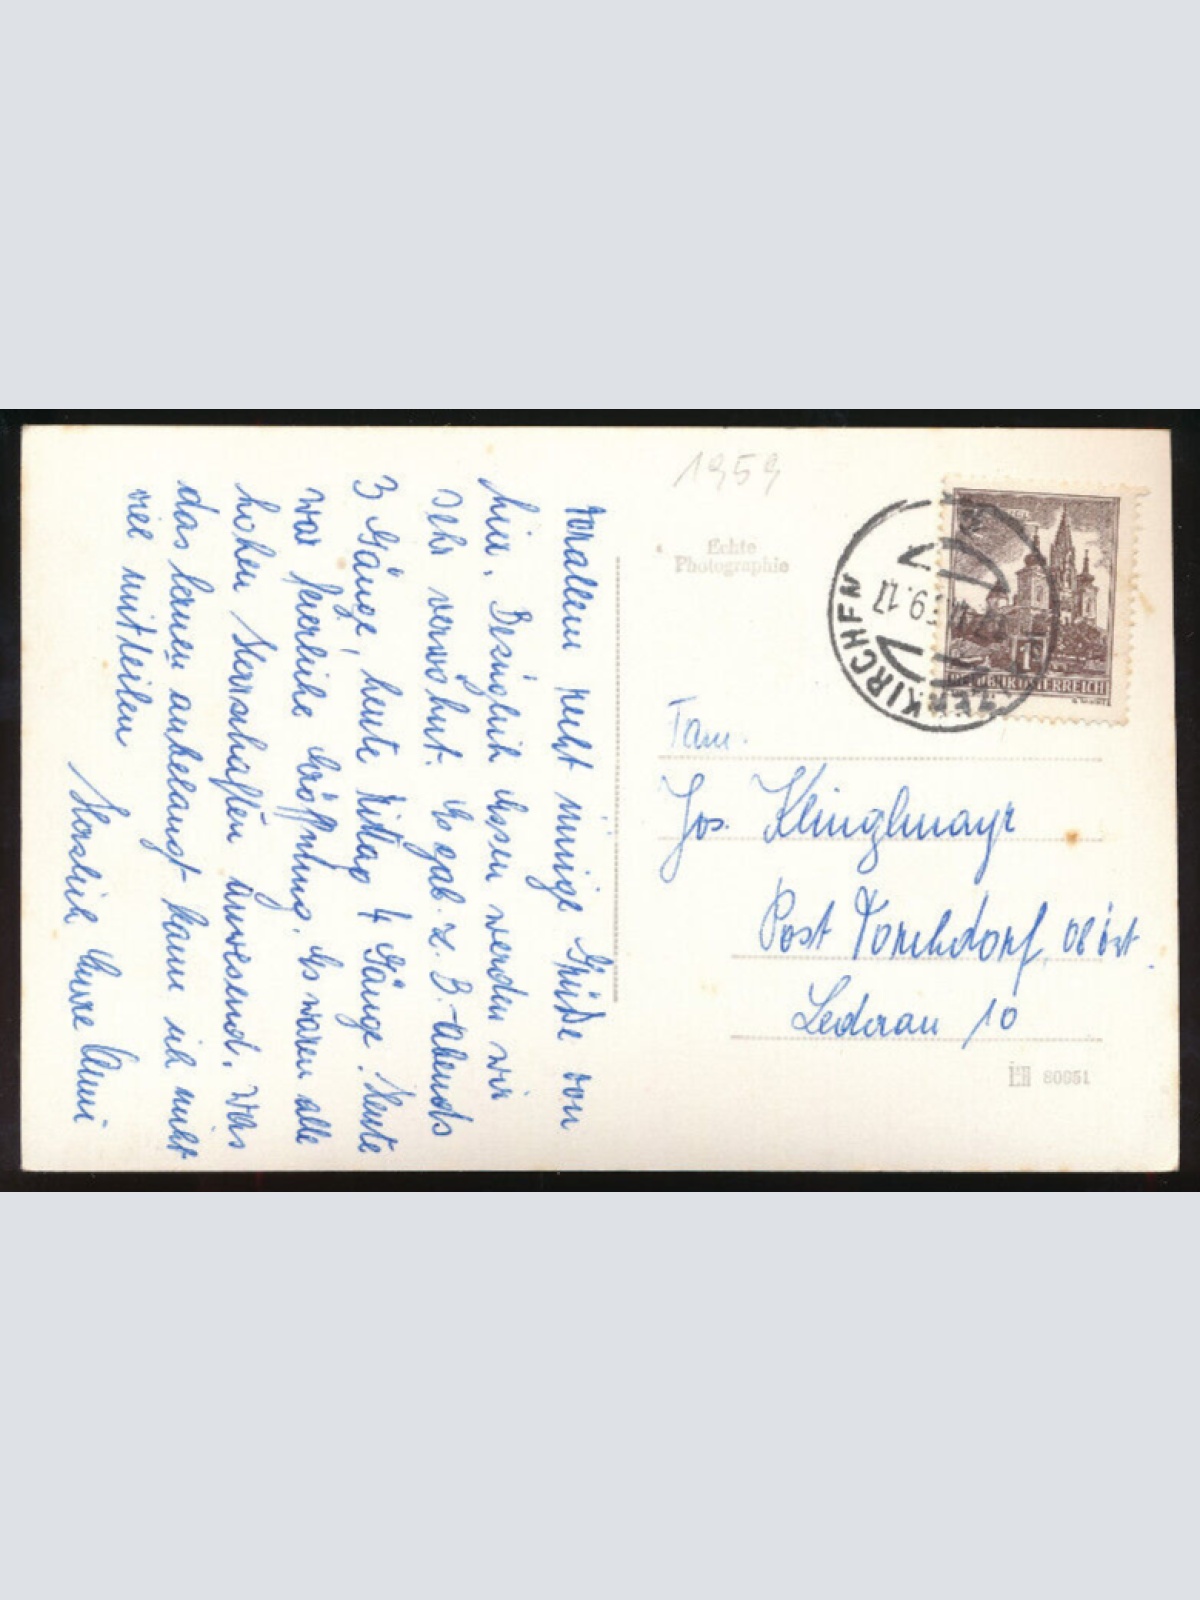 Vorallem recht innige Grüße von
hier. Bezüglich Essen werden wir
sehr verwöhnt. Es gab z. B. Abends
3 Gänge, heute Mittag 4 Gänge. Heute
war feierliche Eröffnung. Es waren alle
hohen Herrschaften anwesend. Was
das lernen anbelangt kann ich nicht
viel mitteilen
Herzlich Eure Anni
1959
Echte
Photographie
ZELLKIRCHEN
9.17
1 S
REPUBLIK ÖSTERREICH
Fam.
Jos. Klinglmayr
Post Vorchdorf, Ob öst.
Lederau 10
80951